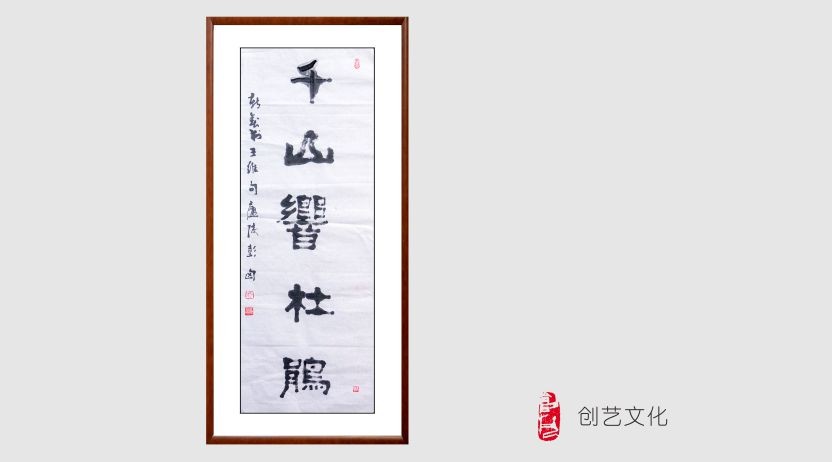 千山響杜鵑
王維句廬陵彭
创艺文化